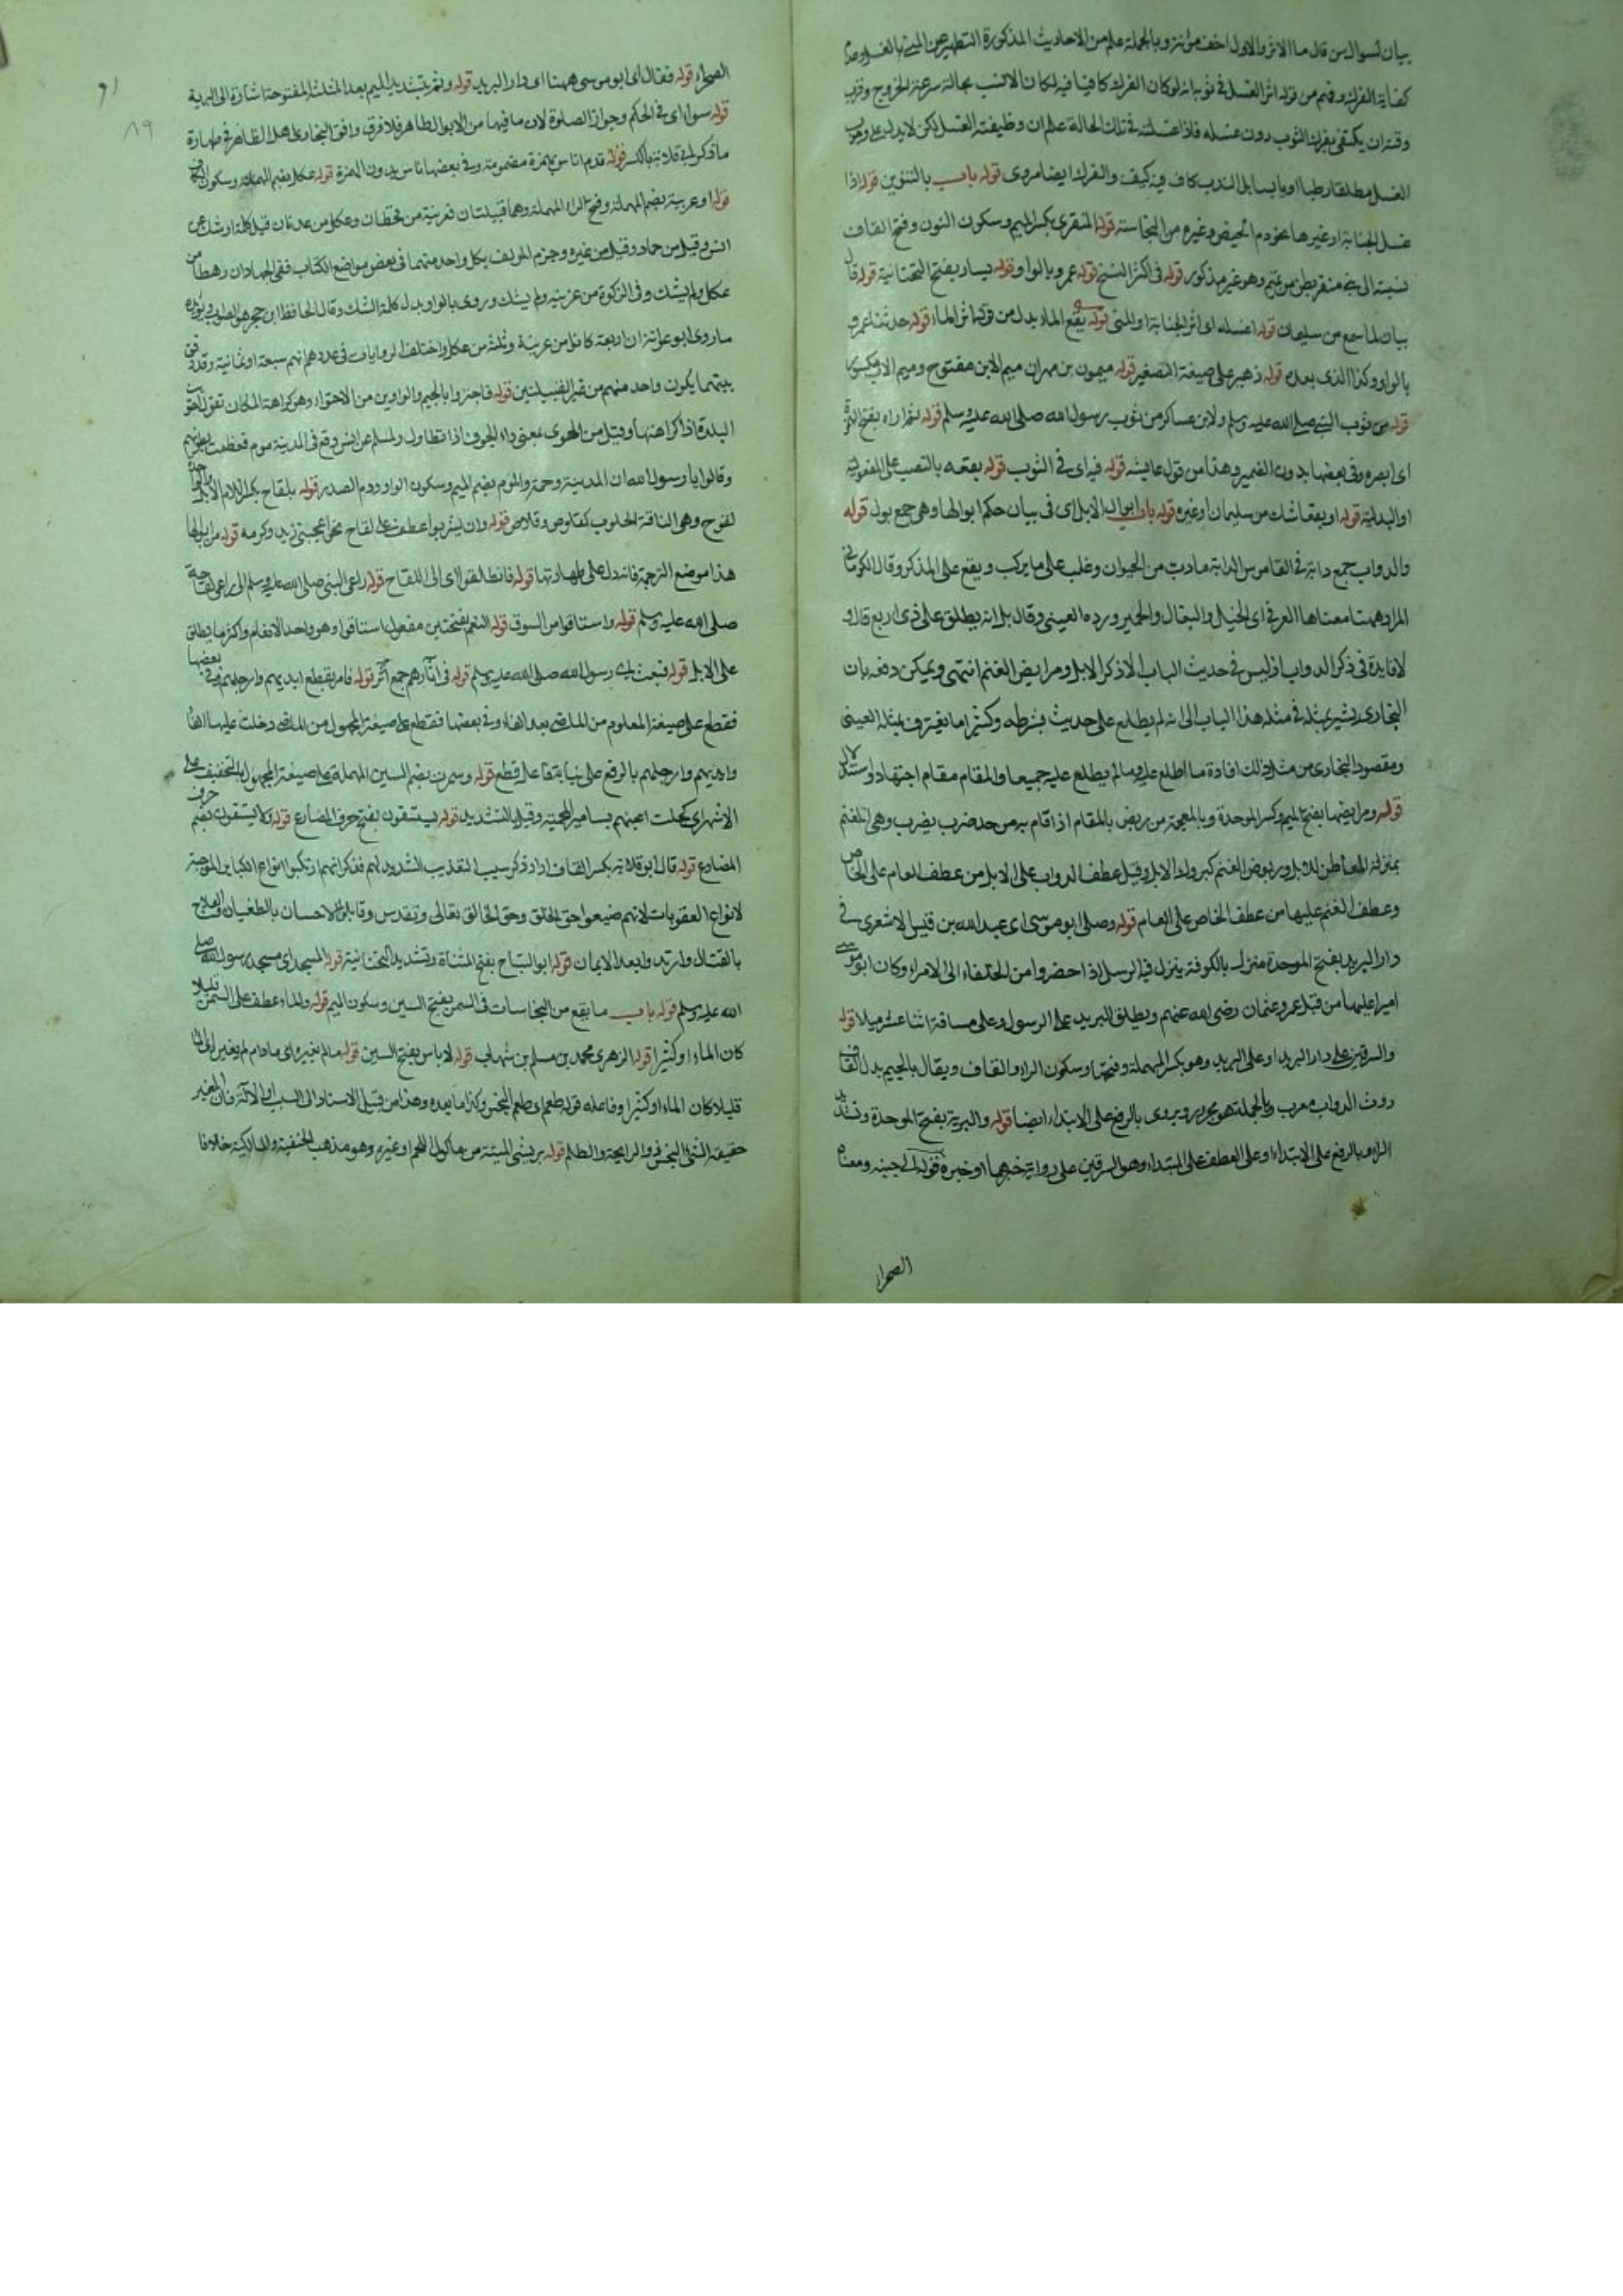 بيان لسوال من قال ما الاثر والاول اخف مؤنة وبالجملة علم من الاحاديث المذكورة التطهير عن المني بالغسل وعدم
كفاية الفرك وفهم من قوله اثر الغسل في ثوبه انه لو كان الفرك كافيا فيه لكان الانسب بحالة سرعة الخروج وقرب
وقته ان يكتفى بفرك الثوب دون غسله فاذا غسلته في تلك الحالة علم ان وظيفته الغسل لكن لا يدل على وجوب
الغسل مطلقا رطبا او يابسا بل الندب كاف فيه كيف والفرك ايضا مروى قوله باب بالتنوين قوله اذا
غسل الجنابة او غيرها نحو دم الحيض وغيره من النجاسة قوله المنقرى بكسر الميم وسكون النون وفتح القاف
نسبة الى بني منقر بطن من تميم وهو غير مذكور قوله في اكثر النسخ قوله عمرو بالواو قوله يسار بفتح التحتانية قوله قال
بيان لما سمع من سليمان قوله اغسله اى اثر الجنابة او المنى قوله بقع الماء بدل من قوله اثر الماء قوله حدثنا عمرو
بالواو وكذا الذى بعده قوله زهير على صيغة التصغير قوله ميمون بن مهران ميم الابن مفتوح وميم الاب مكسور
قوله من ثوب النبي صلى الله عليه وسلم ولابن عساكر من ثوب رسول الله صلى الله عليه وسلم قوله ثم اراه بفتح الهمزة
اى ابصره وفى بعضها بدون الضمير وهذا من قول عايشة قوله فيه اى في الثوب قوله بقعة بالنصب على المفعولية
او البدلية قوله او بقعا شك من سليمان او غيره قوله باب ابوال الابل اى فى بيان حكم ابوالها وهى جمع بول قوله
والدواب جمع دابة في القاموس الدابة ما دب من الحيوان وغلب على ما يركب ويقع على المذكر وقال الكرماني
المراد ههنا معناها العرفي اى الخيل والبغال والحمير ورده العيني وقال بل انه يطلق على ذى اربع قال ولا
لا فايدة في ذكر الدواب اذ ليس في حديث الباب الا ذكر الابل ومرابض الغنم انتهى ويمكن دفعه بان
البخارى يشير بمثله في مثل هذا الباب الى انه لم يطلع على حديث بشرطه وكثيرا ما يعترف بمثله العينى
ومقصود البخارى من مثل ذلك افادة ما اطلع عليه وما لم يطلع عليه جميعا والمقام مقام اجتهاد واستدلال
قوله ومرابضها بفتح الميم وكسر الموحدة وبالمعجمة من ربض بالمقام اذا قام به من حد ضرب يضرب وهى للغنم
بمنزلة المعاطن للابل وربوض الغنم كبروك الابل وقيل عطف الدواب على الابل من عطف العام على الخاص
وعطف الغنم عليها من عطف الخاص على العام قوله وصلى ابو موسى اى عبد الله بن قيس الاشعرى في
دار البريد بفتح الموحدة منزل بالكوفة ينزل فيه الرسل اذا حضروا من الخلفاء الى الامراء وكان ابو موسى
اميرا عليها من قبل عمر وعثمان رضى الله عنهم ويطلق البريد على الرسول وعلى مسافة اثنا عشر ميلا قوله
والسرقين على دار البريد او على البريد وهو بكسر المهملة وفتحها وسكون الراء والقاف ويقال بالجيم بدل القاف
روث الدواب معرب وبالجملة هو مجرور ويروى بالرفع على الابتداء ايضا قوله والبرية بفتح الموحدة وتشديد
الراء وبالرفع على الابتداء او على العطف على المبتداء وهو السرقين على رواية خبرها او خبره قوله الى جنبه ومعناه
الصحراء
٨٩
الصحراء قوله فقال اى ابو موسى ههنا اى دار البريد قوله وثم بتشديد الميم بعد المثلثة المفتوحة اشارة الى البرية
قوله سواء اى في الحكم وجواز الصلوة لان ما فيها من الابوال طاهر فلا فرق وافق البخارى اهل الظاهر في طهارة
ما ذكر ابى قلابة بالكسر قوله قدم اناس بهمزة مضمومة وفي بعضها ناس بدون الهمزة قوله عكل بضم المهملة وسكون الكاف
قوله او عرينة بضم المهملة وفتح الراء المهملة وهما قبيلتان فعرينة من قحطان وعكل من عدنان قيل كلمة او شك من
انس وقيل من حماد وقيل من غيره وجزم المولف بكل واحد منهما فى بعض مواضع الكتاب ففى الجهاد ان رهطا من
عكل ولم يشك وفى الزكوة من عرينة ولم يشك وروى بالواو بدل كلمة الشك وقال الحافظ ابن حجر هو الصواب ويؤيده
ما روى ابو عوانة ان اربعة كانوا من عرينة وثلثة من عكل واختلف الروايات فى عددهم انهم سبعة او ثمانية وقد فى
بيتهما يكون واحد منهم من غير القبيلتين قوله فاجتووا بالجيم والواوين من الاجتواء وهو كراهة المكان تقول اجتويت
البلدة اذا كراهتها وقيل من الجوى بمعنى داء الجوف اذا تطاول ولمسلم عن انس وقع فى المدينة موم فعظمت بطونهم
وقالوا يا رسول الله ان المدينة وخمة والموم بضم الميم وسكون الواو ورم الصدر قوله بلقاح بكسر اللام الابل
لقوح وهى الناقة الحلوب كقلوص وقلاص قوله وان يشربوا عطف على لقاح نحو اعجبنى زيد وكرمه قوله من ابوالها
هذا موضع الترجمة فانه دل على طهارتها قوله فانطلقوا اى الى اللقاح قوله راعى النبى صلى الله عليه وسلم الى راعى لقاحه
صلى الله عليه وسلم قوله واستاقوا من السوق قوله النعم بفتحتين مفعول استاقوا وهو واحد الانعام واكثر ما يطلق
على الابل قوله فبعث اى رسول الله صلى الله عليه وسلم قوله فى اثارهم جمع اثر قوله فامر بقطع ايديهم وارجلهم فى بعضها
فقطع على صيغة المعلوم من الماضى بعد الفاء وفي بعضها فقطع على صيغة المجهول من الماضى دخلت عليها الفاء
وايديهم وارجلهم بالرفع على نيابة فاعل قطع قوله وسمرت بضم السين المهملة على صيغة المجهول بالتخفيف على
الاشهر اى كحلت اعينهم بمسامير المحمية وقيل بالتشديد قوله يستسقون بفتح حرف المضارع قوله ولا يسقون بضم حرف
المضارع قوله قال ابو قلابة بكسر القاف اراد ذكر سبب التعذيب الشديد لهم فذكر انهم ارتكبوا انواع الكباير الموجبة
لانواع العقوبات لانهم ضيعوا حق الخلق وحق الخالق تعالى وتقدس وقابلوا الاحسان بالطغيان والعلاج
بالقتال وارتدوا بعد الايمان قوله ابو التياح بفتح المثناة وتشديد التحتانية قوله المسجد اى مسجد رسول الله صلى
الله عليه وسلم قوله باب ما يقع من النجاسات فى السمن بفتح السين وسكون الميم قوله والماء عطف على السمن قليلا
كان الماء او كثيرا قوله الزهرى محمد بن مسلم بن شهاب قوله لا باس بفتح السين قوله ما لم يغيره اى مادام لم يغير الماء
قليلا كان الماء او كثيرا وفاعله قوله طعم اى طعم النجس وكذا ما بعده وهذا من قبيل الاسناد الى السبب والآلة فان المغير
حقيقة الشئ النجس ذو الرايحة والطعم قوله بريش الميتة من ماكول اللحم او غيره وهو مذهب الحنفية والمالكية خلافا